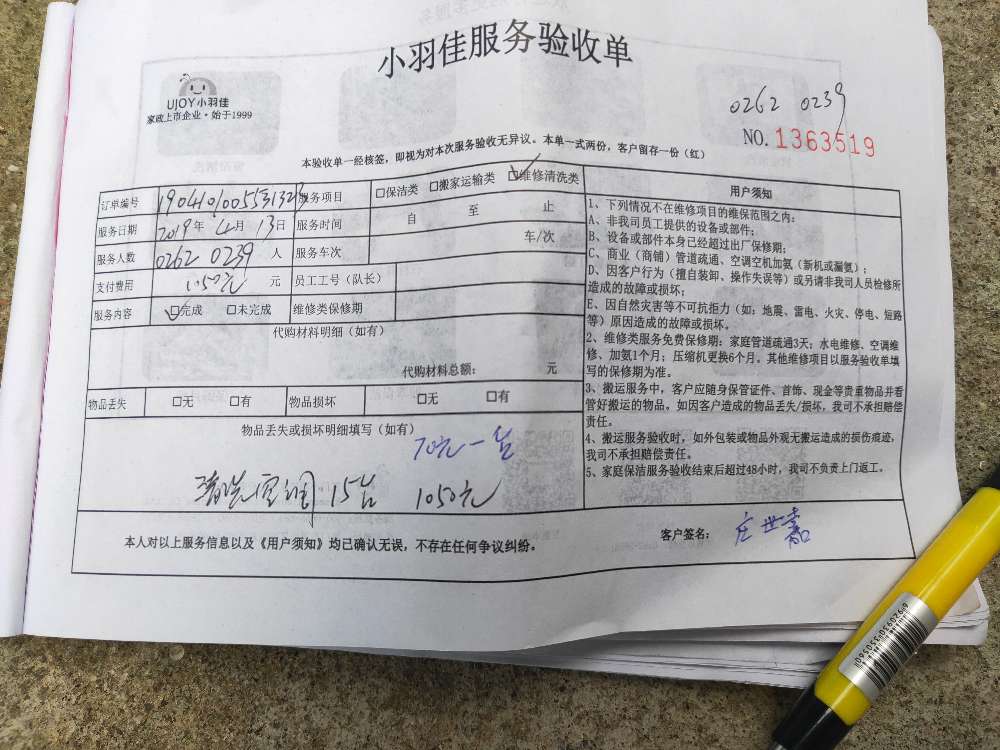 小羽佳服务验收单
UJOY小羽佳
家政上市企业·始于1999
0262 0239
NO. 1363519
本验收单一经核签，即视为对本次服务验收无异议。本单一式两份，客户留存一份（红）
订单编号 服务项目 □保洁类 □搬家运输类 □维修清洗类
服务日期 2019年 4月 13日 服务时间 自 至 止
服务人数 0262 0239 人 服务车次 车/次
支付费用 1050元 元 员工工号（队长）
服务内容 □完成 □未完成 维修类保修期
代购材料明细（如有）
代购材料总额： 元
物品丢失 □无 □有 物品损坏 □无 □有
物品丢失或损坏明细填写（如有）
70元一台
清洗空调 15台 1050元
本人对以上服务信息以及《用户须知》均已确认无误，不存在任何争议纠纷。
用户须知
1、下列情况不在维修项目的维保范围之内：
A、非我司员工提供的设备或部件；
B、设备或部件本身已经超过出厂保修期；
C、商业（商铺）管道疏通、空调空机加氨（新机或漏氨）；
D、因客户行为（擅自装卸、操作失误等）或另请非我司人员检修所
造成的故障或损坏；
E、因自然灾害等不可抗拒力（如：地震、雷电、火灾、停电、短路
等）原因造成的故障或损坏。
2、维修类服务免费保修期：家庭管道疏通3天；水电维修、空调维
修、加氨1个月；压缩机更换6个月，其他维修项目以服务验收单填
写的保修期为准。
3、搬运服务中，客户应随身保管证件、首饰、现金等贵重物品并看
管好搬运的物品。如因客户造成的物品丢失/损坏，我司不承担赔偿
责任。
4、搬运服务验收时，如外包装或物品外观无搬运造成的损伤痕迹，
我司不承担赔偿责任。
5、家庭保洁服务验收结束后超过48小时，我司不负责上门返工。
客户签名： 庄世嘉